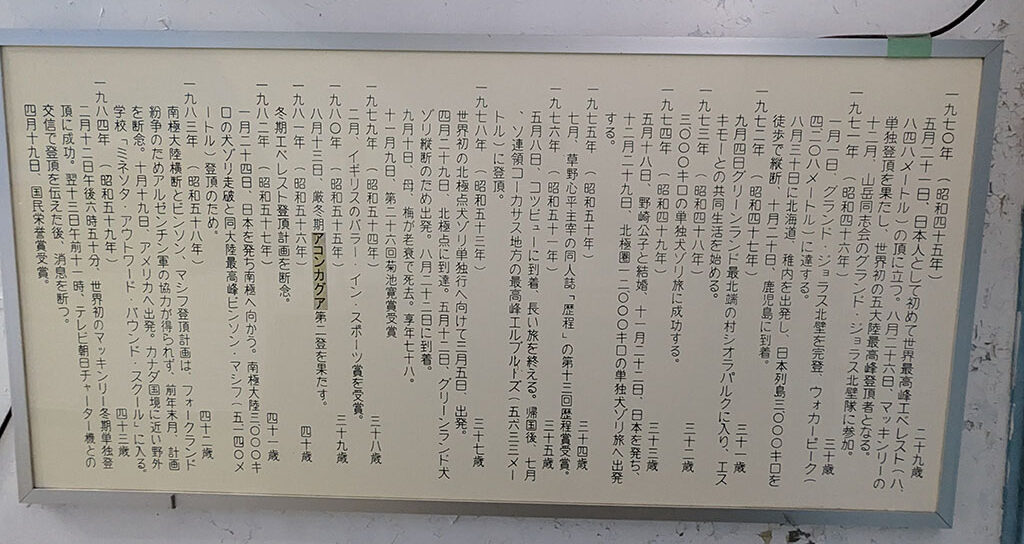 一九七〇年(昭和四十五年) 二十九歳
五月十一日、日本人として初めて世界最高峰エベレスト(八、
八四八メートル)の頂に立つ。八月二十六日、マッキンリーの
単独登頂を果たし、世界初の五大陸最高峰登頂者となる。
十二月、山岳同志会のグランド・ジョラス北壁隊に参加。
一九七一年(昭和四十六年) 三十歳
一月一日、グランド・ジョラス北壁を完登 ウォカーピーク(
四二〇八メートル)に達する。
八月三十日に北海道、稚内を出発し、日本列島三〇〇〇キロを
徒歩で縦断、十月二十日、鹿児島に到着。
一九七二年(昭和四十七年) 三十一歳
九月四日グリーンランド最北端の村シオラパルクに入り、エス
キモーとの共同生活を始める。
一九七三年(昭和四十八年) 三十二歳
三〇〇〇キロの単独犬ゾリ旅に成功する。
一九七四年(昭和四十九年) 三十三歳
五月十八日、野崎公子と結婚、十一月二十二日、日本を発ち、
十二月二十九日、北極圏一二〇〇〇キロの単独犬ゾリ旅へ出発
する。
一九七五年(昭和五十年) 三十四歳
七月、草野心平主宰の同人誌「歴程」の第十三回歴程賞受賞。
一九七六年(昭和五十一年) 三十五歳
五月八日、コツビューに到着、長い旅を終える。帰国後、七月
、ソ連領コーカサス地方の最高峰エルブルーズ(五六三三メー
トル)に登頂。
一九七八年(昭和五十三年) 三十七歳
世界初の北極点犬ゾリ単独行へ向けて三月五日、出発。
四月二十九日、北極点に到達。五月十二日、グリーンランド犬
ゾリ縦断のため出発。八月二十二日に到着。
九月十日、母、梅が老衰で死去。享年七十八。
十一月九日、第二十六回菊池寛賞受賞
一九七九年(昭和五十四年) 三十八歳
二月、イギリスのバラー・イン・スポーツ賞を受賞。
一九八〇年(昭和五十五年) 三十九歳
八月十三日、厳冬期アコンカグア第二登を果たす。
一九八一年(昭和五十六年) 四十歳
冬期エベレスト登頂計画を断念。
一九八二年(昭和五十七年) 四十一歳
一月二十四日、日本を発ち南極へ向かう。南極大陸三〇〇〇キ
ロの犬ゾリ走破と同大陸最高峰ビンソン・マシフ(五一四〇メ
ートル)登頂のため。
一九八三年(昭和五十八年) 四十二歳
南極大陸横断とビンソン、マシフ登頂計画は、フォークランド
紛争のためアルゼンチン軍の協力が得られず、前年末月、計画
を断念。十月十九日、アメリカへ出発。カナダ国境に近い野外
学校「ミネソタ・アウトワード・バウンド・スクール」に入る。
一九八四年(昭和五十九年) 四十三歳
二月十二日午後六時五十分、世界初のマッキンリー冬期単独登
頂に成功。翌十三日午前十一時、テレビ朝日チャーター機との
交信で登頂を伝えた後、消息を断つ。
四月十九日、国民栄誉賞受賞。